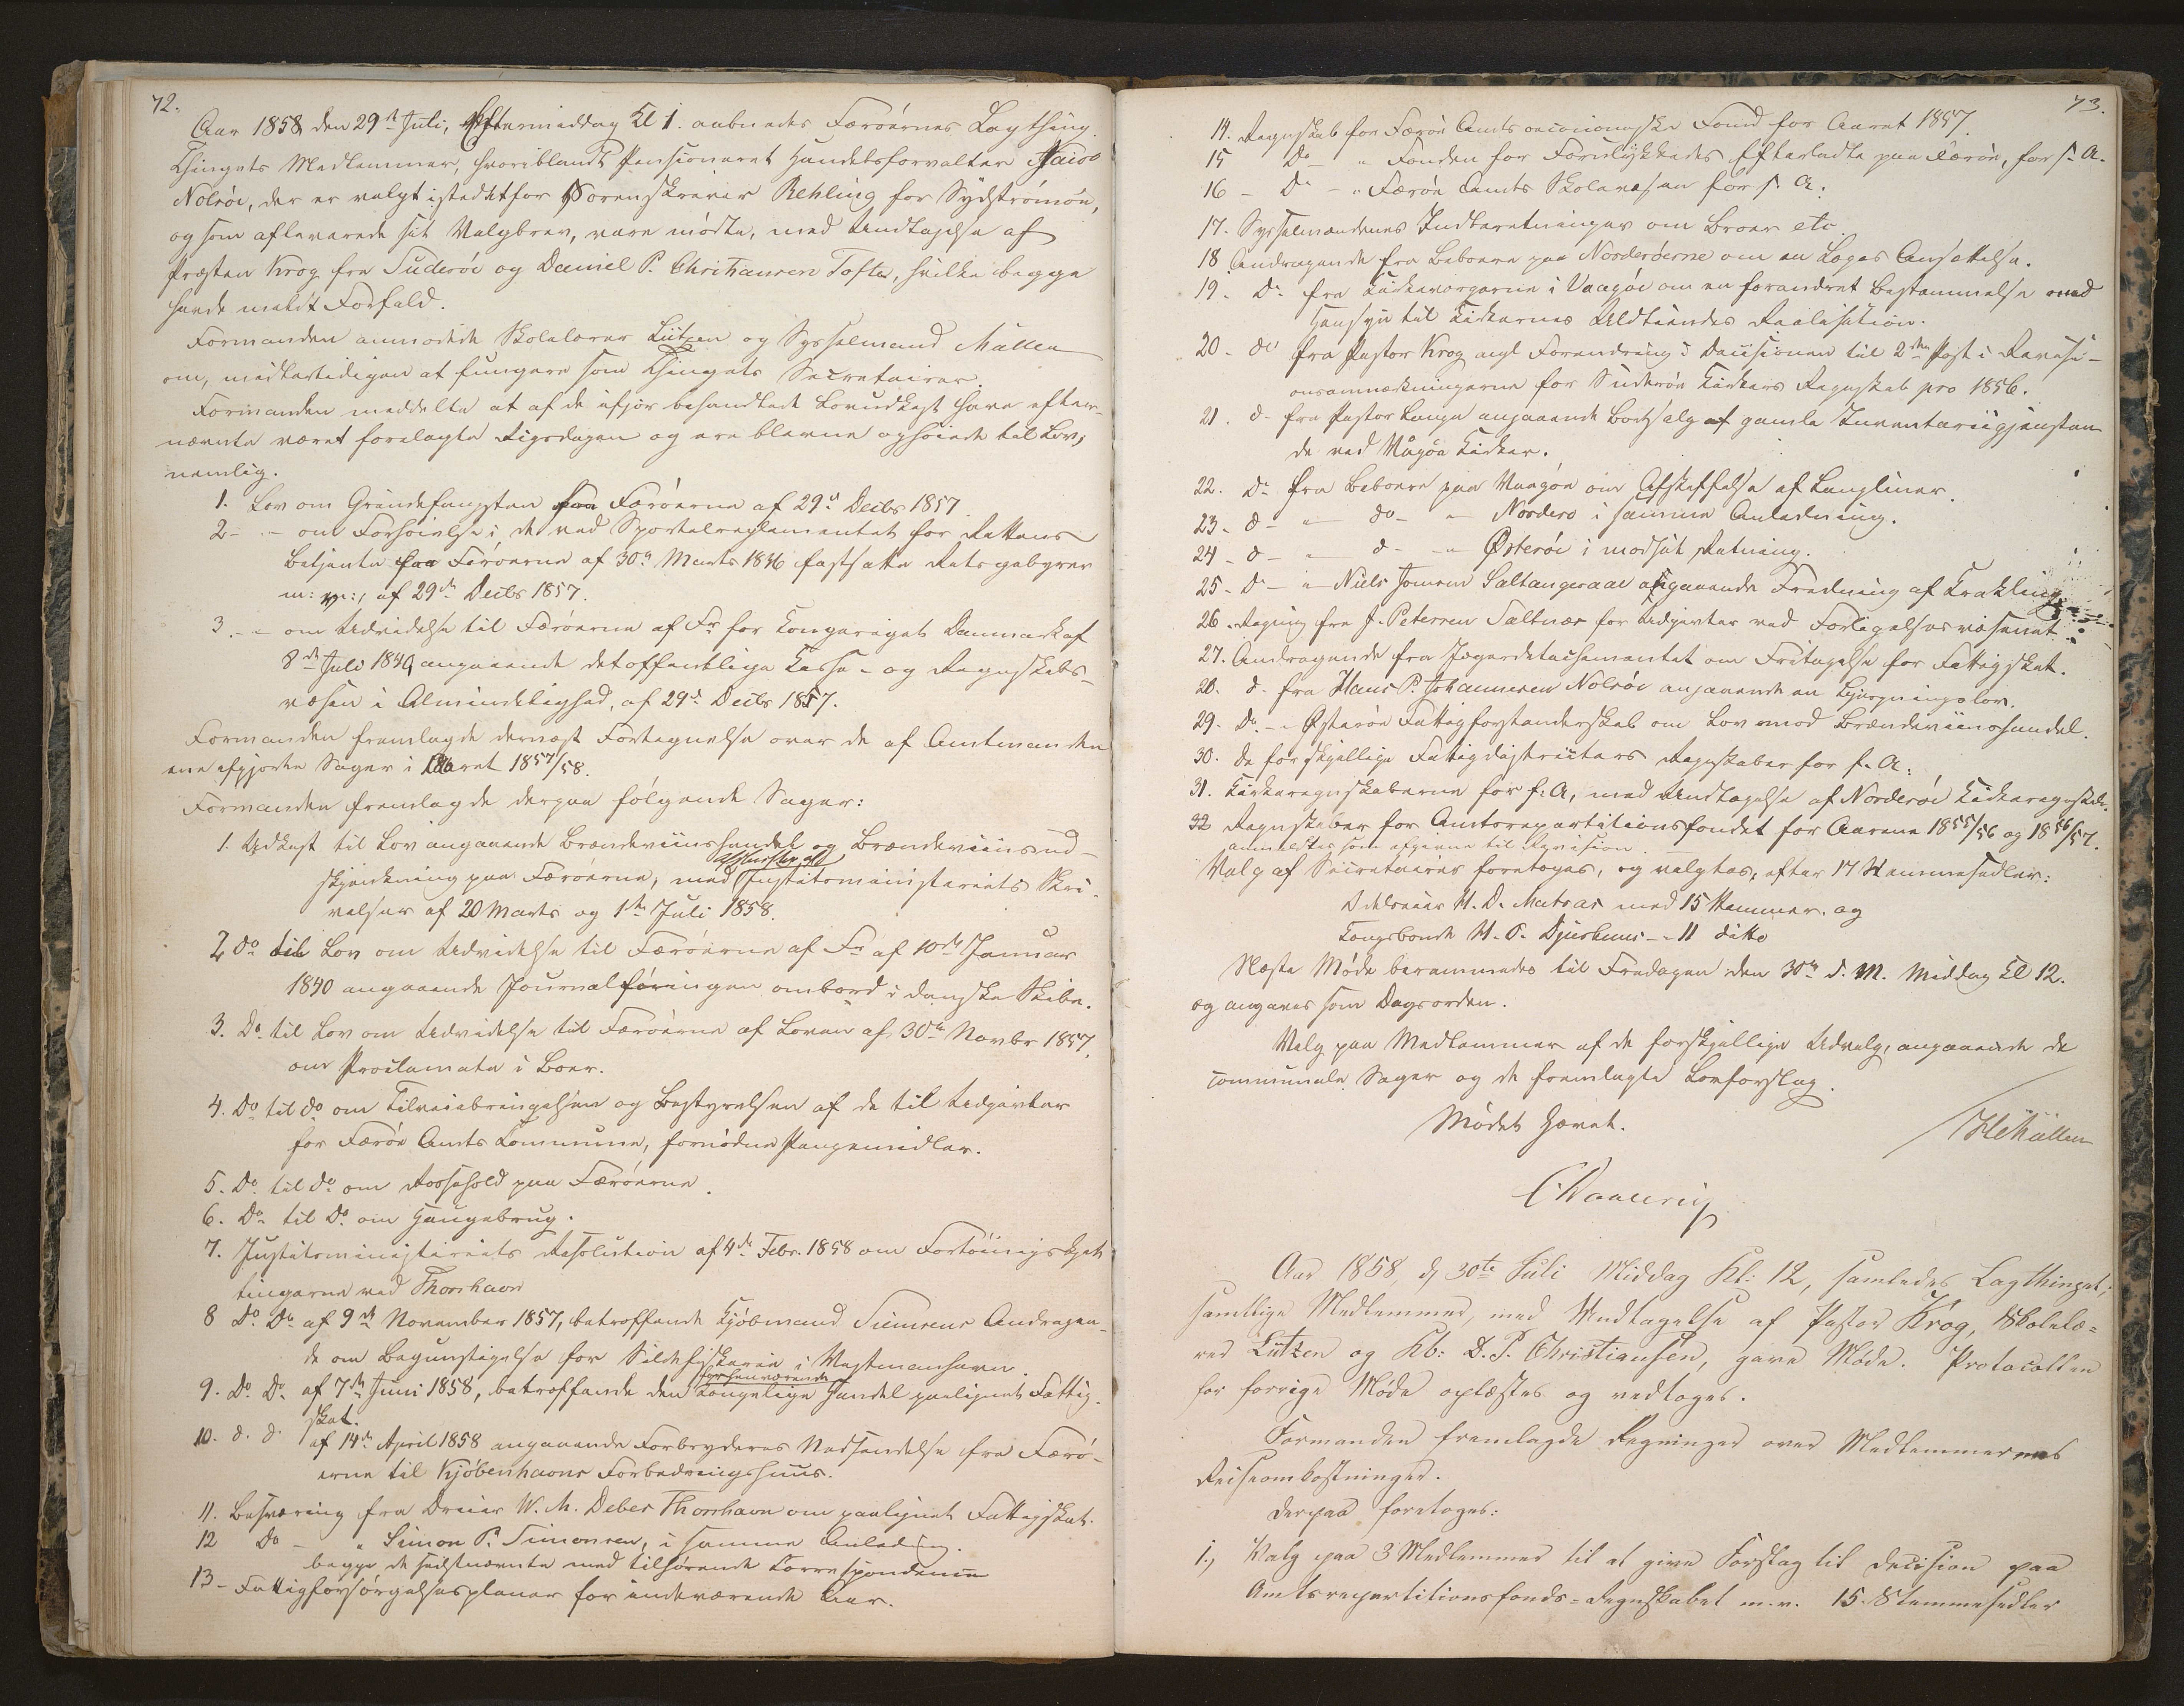 72.
Aar 1858, den 29d Juli, Eftermiddag Kl 1. aabnedes Færöernes Lagthing.
Thingets Medlemmer, hvoriblandt Pensioneret Handelsforvalter
Nolsöe, der er valgt istedetfor Sorenskriver Rehling for Sydströmöe,
og som afleverede sit Valgbrev, vare mödte, med Undtagelse af
Præsten Krog fra Suderöe og Daniel P. Christiansen Tofte, hvilke begge
havde meldt Forfald.
Formanden anmodede Skolelærer Lützen og Sysselmand Müller
om, midlertidigen at fungere som Thingets Secretairer.
Formanden meddelte at af de ifjor behandlede Lovudkast have efter-
nævnte været forelagte Rigsdagen og ere blevne ophöiede til Lov,
nemlig.
1. Lov om Grindefangsten paa Færöerne af 29d Decbr 1857.
2 - - om Forhöielse i de ved Sportelreglementet for Rettens
Betjente paa Færöerne af 30d Marts 1836 fastsatte Retsgebyrer
m: v:, af 29de Decbr 1857.
3. - - om Udvidelse til Færöerne af Fr for Kongeriget Danmark af
8de Juli 1840 angaaende det offentlige Kasse- og Regnskabs-
væsen i Almindelighed, af 29d Decbr 1857.
Formanden fremlagde dernæst Fortegnelse over de af Amtmanden
ene afgjorte Sager i Aaret 1857/58.
Formanden fremlagde derpaa fölgende Sager:
1. Udkast til Lov angaaende Brændeviinshandel og Brændeviinsud-
skjænkning paa Færöerne, med Justitsministeriets Skri-
velser af 20 Marts og 1ste Juli 1858.
2 do til Lov om Udvidelse til Færöerne af Fr af 10de Januar
1840 angaaende Journalföringen ombord i danske Skibe.
3. Do til Lov om Udvidelse til Færöerne af Loven af 30te Novbr 1857,
om Proclamata i Boer.
4. Do til do om Tilveiebringelsen og Bestyrelsen af de til Udgivter
for Færöe Amts Kommune, fornödne Pengemidler.
5. Do til do om Rossehold paa Færöerne.
6. Do til Do om Haugebrug.
7. Justitsministeriets Resolution af 4de Febr. 1858 om Fortöinings
ved Thorshavn
8 Do Do af 9de November 1857, betreffende Kjöbmand Siemsens Andragen-
de om Begunstigelse for Sildefiskerie i Westmanhavn.
forhenværende
9. Do Do af 7de Juni 1858, betreffende den Kongelige Handel paalignet Fattig-
skat.
10. d. d. af 14de April 1858 angaaende Forbryderes Nedsendelse fra Færö-
erne til Kjöbenhavns Forbedringshuus.
11. Besværing fra Dreier W. M. Debes Thorshavn om paalignet Fattigskat.
12 Do - " Simon P. Simonsen, i samme Anledning.
begge de sidstnævnte med tilhörende Correspondence
13 - Fattigforsörgelsesplaner for indeværende Aar.
73.
14. Regnskab for Færöe Amts oeconomiske Fond for Aaret 1857.
15 Do - " Fonden for Forulykkedes Efterladte paa Færöe, for s. A.
16 - Do - " Færöe Amts Skolevæsen for s. A.
17. Sysselmændenes Indberetninger om Broer etc.
18 Andragende fra Beboere paa Norderöerne om en Læges Ansættelse.
19. Do fra Kirkeværgerne i Vaagöe om en forandret Bestemmelse med
Hensyn til Kirkernes Uldtiendes Realisation.
20 - do fra Pastor Krog angl Forandring i Decisionen til 2den Post i Revisi-
onsanmærkningerne for Suderöe Kirkers Regnskab pro 1856.
21. d - fra Pastor Lange angaaende Bortsalg af gamle Inventariigjenstan
de ved Vågöe Kirker.
22. Do fra Beboere paa Vaagöe om Afskaffelse af Langliner.
23 - d - " do - " Norderö i samme Anledning.
24 - d - " d - " Österöe i modsat Retning.
25 - Do - " Niels Joensen Saltangeraae angaaende Fredning af Krækling
26 - Regning fra J. Petersen Saltnæs for Udgivter ved Forligelsesvæsenet.
27. Andragende fra Jægerdetachementet om Fritagelse for Fattigskat.
28. d. fra Hans P. Johannesen Nolsöe angaaende en Bjergningslov.
29. Do - " Österöe Fattigforstanderskab om Lov mod Brændeviinshandel.
30. De forskjellige Fattigdistricters Regnskaber for f. A.
31. Kirkeregnskaberne for f. A, med Undtagelse af Norderöe Kirkeregnskab.
32 Regnskaber for Amtsrepartitionsfondet for Aarene 1855/56 og 1856/57.
anmeldtes som afgivne til Revision.
Valg af Secretairer foretoges, og valgtes, efter 17 Stemmesedler:
H. D. Matras med 15 Stemmer. og
Kongsbonde H. P. Djurhuus - " 11 ditto
Næste Möde berammedes til Fredagen den 30te d. M. Middag Kl 12.
og angaves som Dagsorden.
Valg paa Medlemmer af de forskjellige Udvalg, angaaende de
communale Sager og de fremlagte Lovforslag.
Mödet hævet.
HMüller
CDahlerup
Aar 1858, d, 30te Juli Middag Kl: 12, samledes Lagthinget;
samtlige Medlemmer, med Undtagelse af Pastor Krog, Skolelæ-
rer Lützen og Kb: D. P. Christiansen, gave Möde. Protocollen
for forrige Möde oplæstes og vedtoges.
Formanden fremlagde Regninger over Medlemmernes
Reiseomkostninger.
Derpaa foretoges:
1., Valg paa 3 Medlemmer til at give Forslag til Decision paa
Amtsrepartitionsfonds-Regnskabet m. v. 15 Stemmesedler